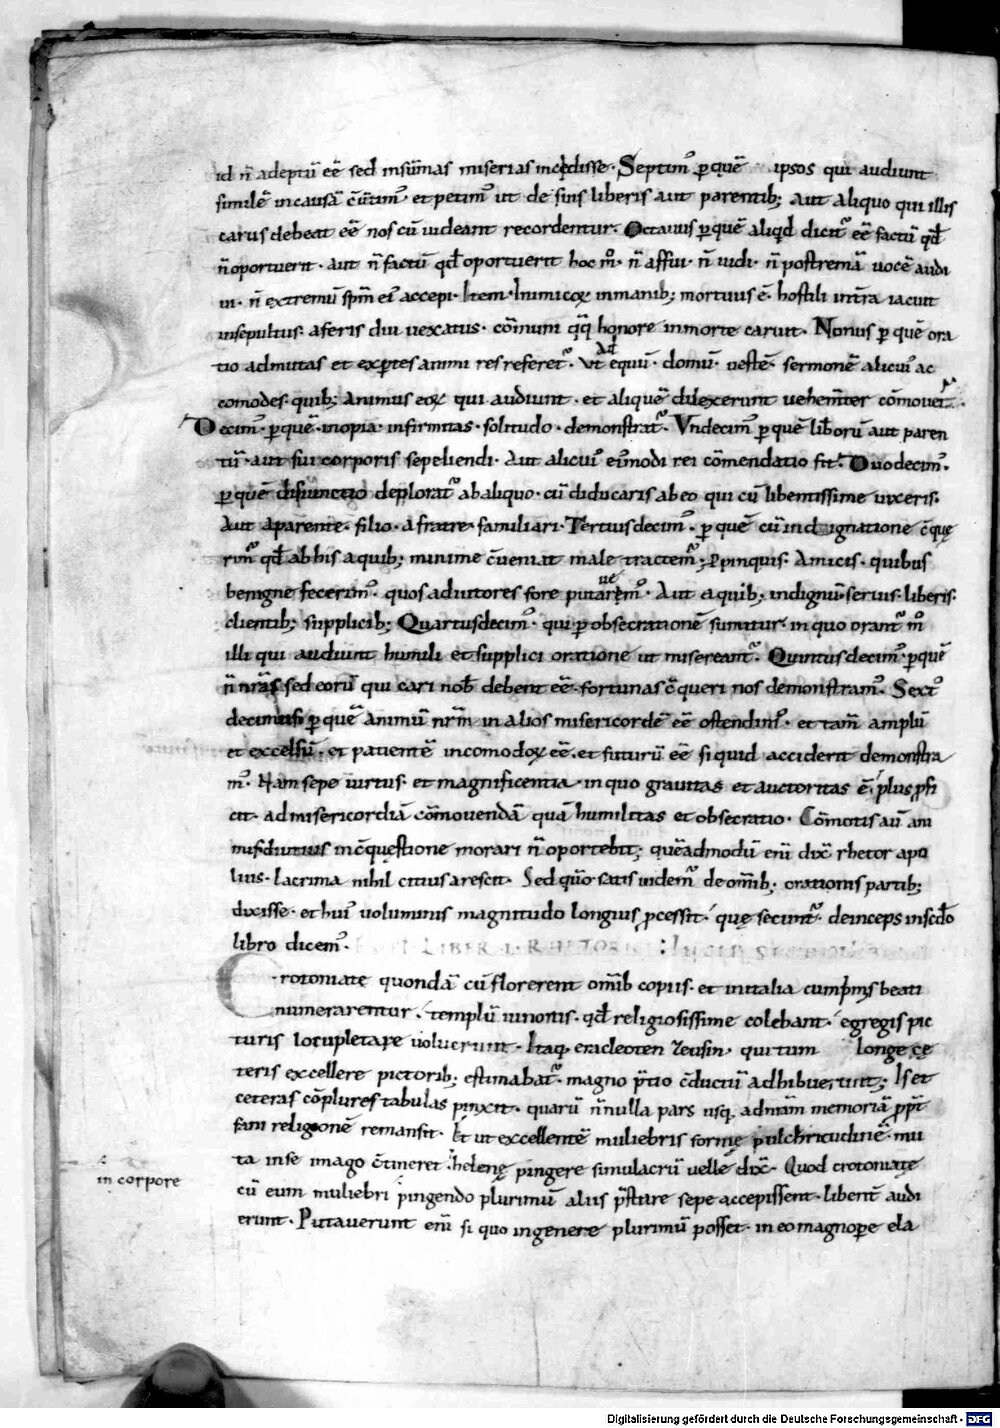 id n̄ adeptū eē sed insūmas miserias incedisse · Septim᷒ ꝑ quē ipsos qui audiunt
similē in causā c̄uertim᷒ · et petim᷒ ut de suis liberis aut parentib; aut aliquo qui illis
carus debeat eē nos cū uideant recordentur · Octauus ꝑ quē aliqd dicit᷒ eē factū qd̄
n̄ oportuerit · aut n̄ factū qd̄ oportuerit hoc m̊ · n̄ affui · n̄ uidi · n̄ postremā uocē audi
ui · n̄ extremū sp̄m ei᷒ accepi · Item · Inimicoꝝ in manib; mortuus ē · hostili int̄ra iacuit
insepultus · a feris diu uexatus · cōmuni q̄q honore in morte caruit · Nonus ꝑ quē ora
tio ad mutas et exꝑtes animi res referet᷒ · Vt equū · domū · uestē · sermonē alicui᷒ ac
Ad
comodes · quib; animus eoꝝ qui audiunt · et aliquē dilexerunt uehem̄ter cōmouet᷒ ·
Decim᷒ · ꝑ quē · inopia · infirmitas · solitudo · demonstrat᷒ · Vndecim᷒ ꝑ quē liberorū aut paren
tū · aut sui corporis sepeliendi · Aut alicui᷒ ei᷒modi rei cōmendatio fit · Duodecim᷒ ·
ꝑ quē disiunctio deplorat᷒ ab aliquo · cū diducaris ab eo qui cū libentissime uixeris ·
Aut a parente · filio · a fratre · familiari · Tertiusdecim᷒ · ꝑ quē cū indignatione c̄que
rim᷒ qd̄ ab his a quib; minime c̄ueniat male tractem᷒; ꝓpinquis · Amicis · quibus
benigne fecerim᷒ · quos adiutores fore putarem᷒ · Aut a quib; indignū · seruis · liberis ·
ue
clientib; supplicib; Quartusdecim᷒ · qui ꝑ obsecrationē sumitur · in quo orant᷒ m̊
illi qui audiunt humili et supplici oratione ut misereant᷒ · Quintusdecim᷒ · ꝑ quē
n̄ nr̄as sed eorū qui cari nob̄ debent eē · fortunas c̄queri nos demonstram᷒ · Sext᷒
decimus ꝑ quē animū nr̄m in alios misericordē eē ostendim᷒ · et tam̄ amplū
et excelsū · et patientē incomodoꝝ eē · et futurū eē si quid acciderit demonstra
m᷒ · Nam sepe uirtus · et magnificentia · in quo grauitas et auctoritas ē · plus ꝓfi
cit · ad misericordiā cōmouendā quā humilitas et obsecratio · Cōmotis aū ani
mis diutius in c̄questione morari n̄ oportebit; quēadmodū eni̅ dix̄ rhetor apo
lius · lacrima nihil citius arescit · Sed qm̄o satis uidem᷒ de om̄ib; orationis partib;
dixisse · et hui᷒ uoluminis magnitudo longius ꝓcessit · que secunt᷒ · deinceps in scd̄o
libro dicem᷒ ·
Crotoniate quondā cū florerent om̄ib copiis · et in italia cum pm̄is beati
numerarentur · templū iunonis · qd̄ religiosissime colebant · egregis pic
turis locupletare uoluerunt · Itaq, eracleoten zeusin · qui tum longe ce
teris excellere pictorib; estimabat᷒ · magno p̄tio c̄ductū adhibuerunt; Is et
ceteras cōplures tabulas pinxit · quarū n̄nulla pars usq, ad nr̄am memoriā ꝓpt̄
fani religionē remansit · Et ut excellentē muliebris forme pulchritudinē · mu
ta in se imago c̄tineret · helene pingere simulacrū uelle dix̄ · Quod crotoniate
in corpore
cū eum muliebri pingendo plurimū aliis p̄stare sepe accepissent · libent̄ audi
erunt · Putauerunt eni̅ si quo in genere plurimū posset · in eo magnoꝑe ela